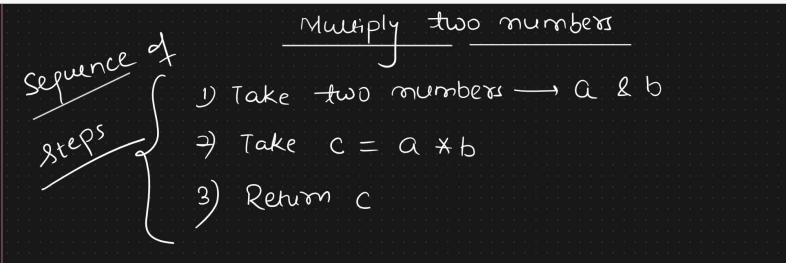 Multiply two numbers
Sequence of
steps
1) Take two numbers → a & b
2) Take c = a * b
3) Return c